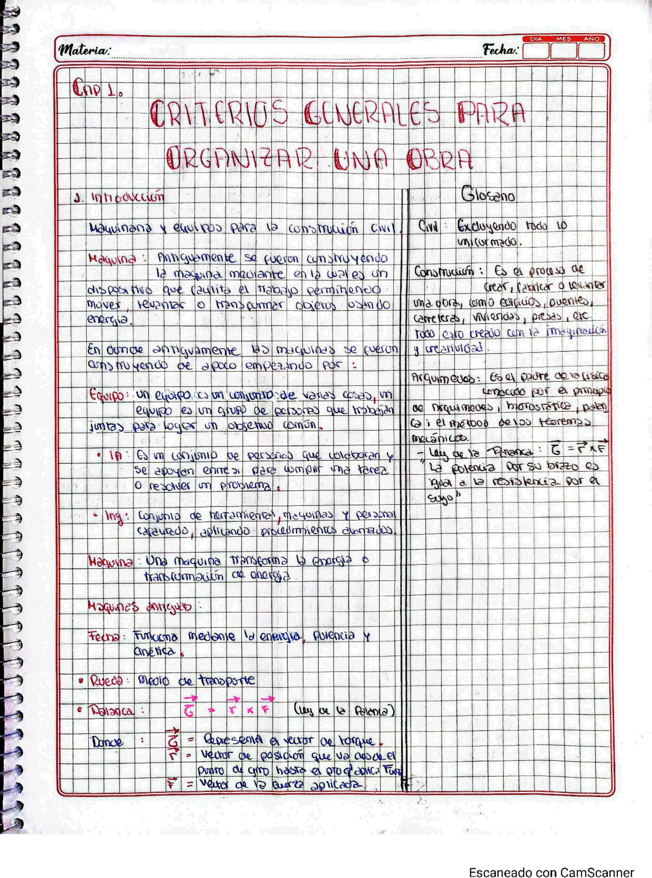 Materia:
Fecha:
DIA MES AÑO
Cap 1.
CRITERIOS GENERALES PARA
ORGANIZAR UNA OBRA
1. Introducción
Maquinaria y equipos para la construcción civil.
Maquina: Antiguamente se fueron construyendo
la maquina mediante en la cual es un
dispositivo que facilita el trabajo permitiendo
mover, levantar o transformar objetos usando
energía.
En donde antiguamente las maquinas se fueron
construyendo de apoco empezando por :
Equipo: un equipo es un conjunto de varias cosas, un
equipo es un grupo de personas que trabajan
juntas para lograr un objetivo común.
• Es un conjunto de personas que colaboran y
se apoyan entre si para cumplir una tarea
o resolver un problema.
- Ing: Conjunto de herramientas, maquinas y personal
capacitado, aplicando procedimientos
Maquina: Una maquina transforma la energía o
transformación de energía.
Maquinas antiguas:
Fecha: Funciona mediante la energia, potencia y
cinética.
• Rueda: medio de transporte
• Palanca: τ = r x F (Ley de la Palanca)
Donde : τ = Representa el vector de torque.
r = vector de posición que va desde el
punto de giro hasta el aplica
F = Vector de la fuerza aplicada.
Glosario
Civil: Excluyendo todo lo
uniformado.
Construcción: Es el proceso de
crear, fabricar o levantar
una obra, como edificios, puentes,
carreteras, viviendas, presas, etc.
todo esto creado con la imaginación
y creatividad.
Arquimedes: Es el padre de la física
conocido por el principio
de Arquimedes, hidrostática, palan
ca i el metodo de los teoremas
mecánicos.
- Ley de la Palanca: τ = r x F
"La potencia por su brazo es
igual a la resistencia por el
suyo"
Escaneado con CamScanner